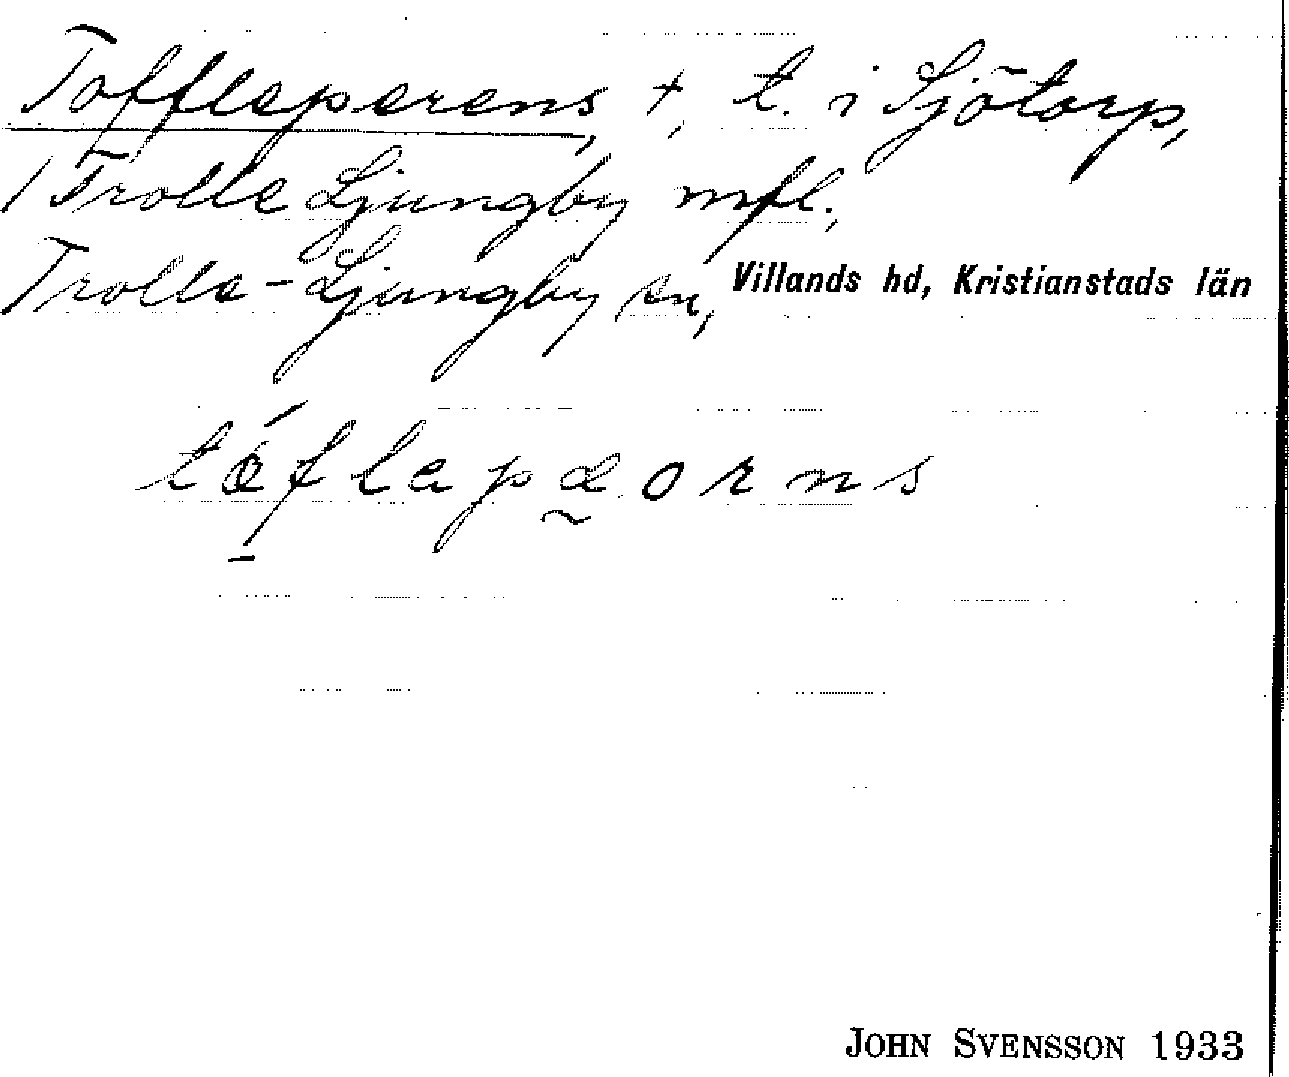 Toffleperens, +, t. i Sjötorp,
1 Trolle Ljungby mfl.,
Trolle-Ljungby sn, Villands hd, Kristianstads län
JOHN SVENSSON 1933